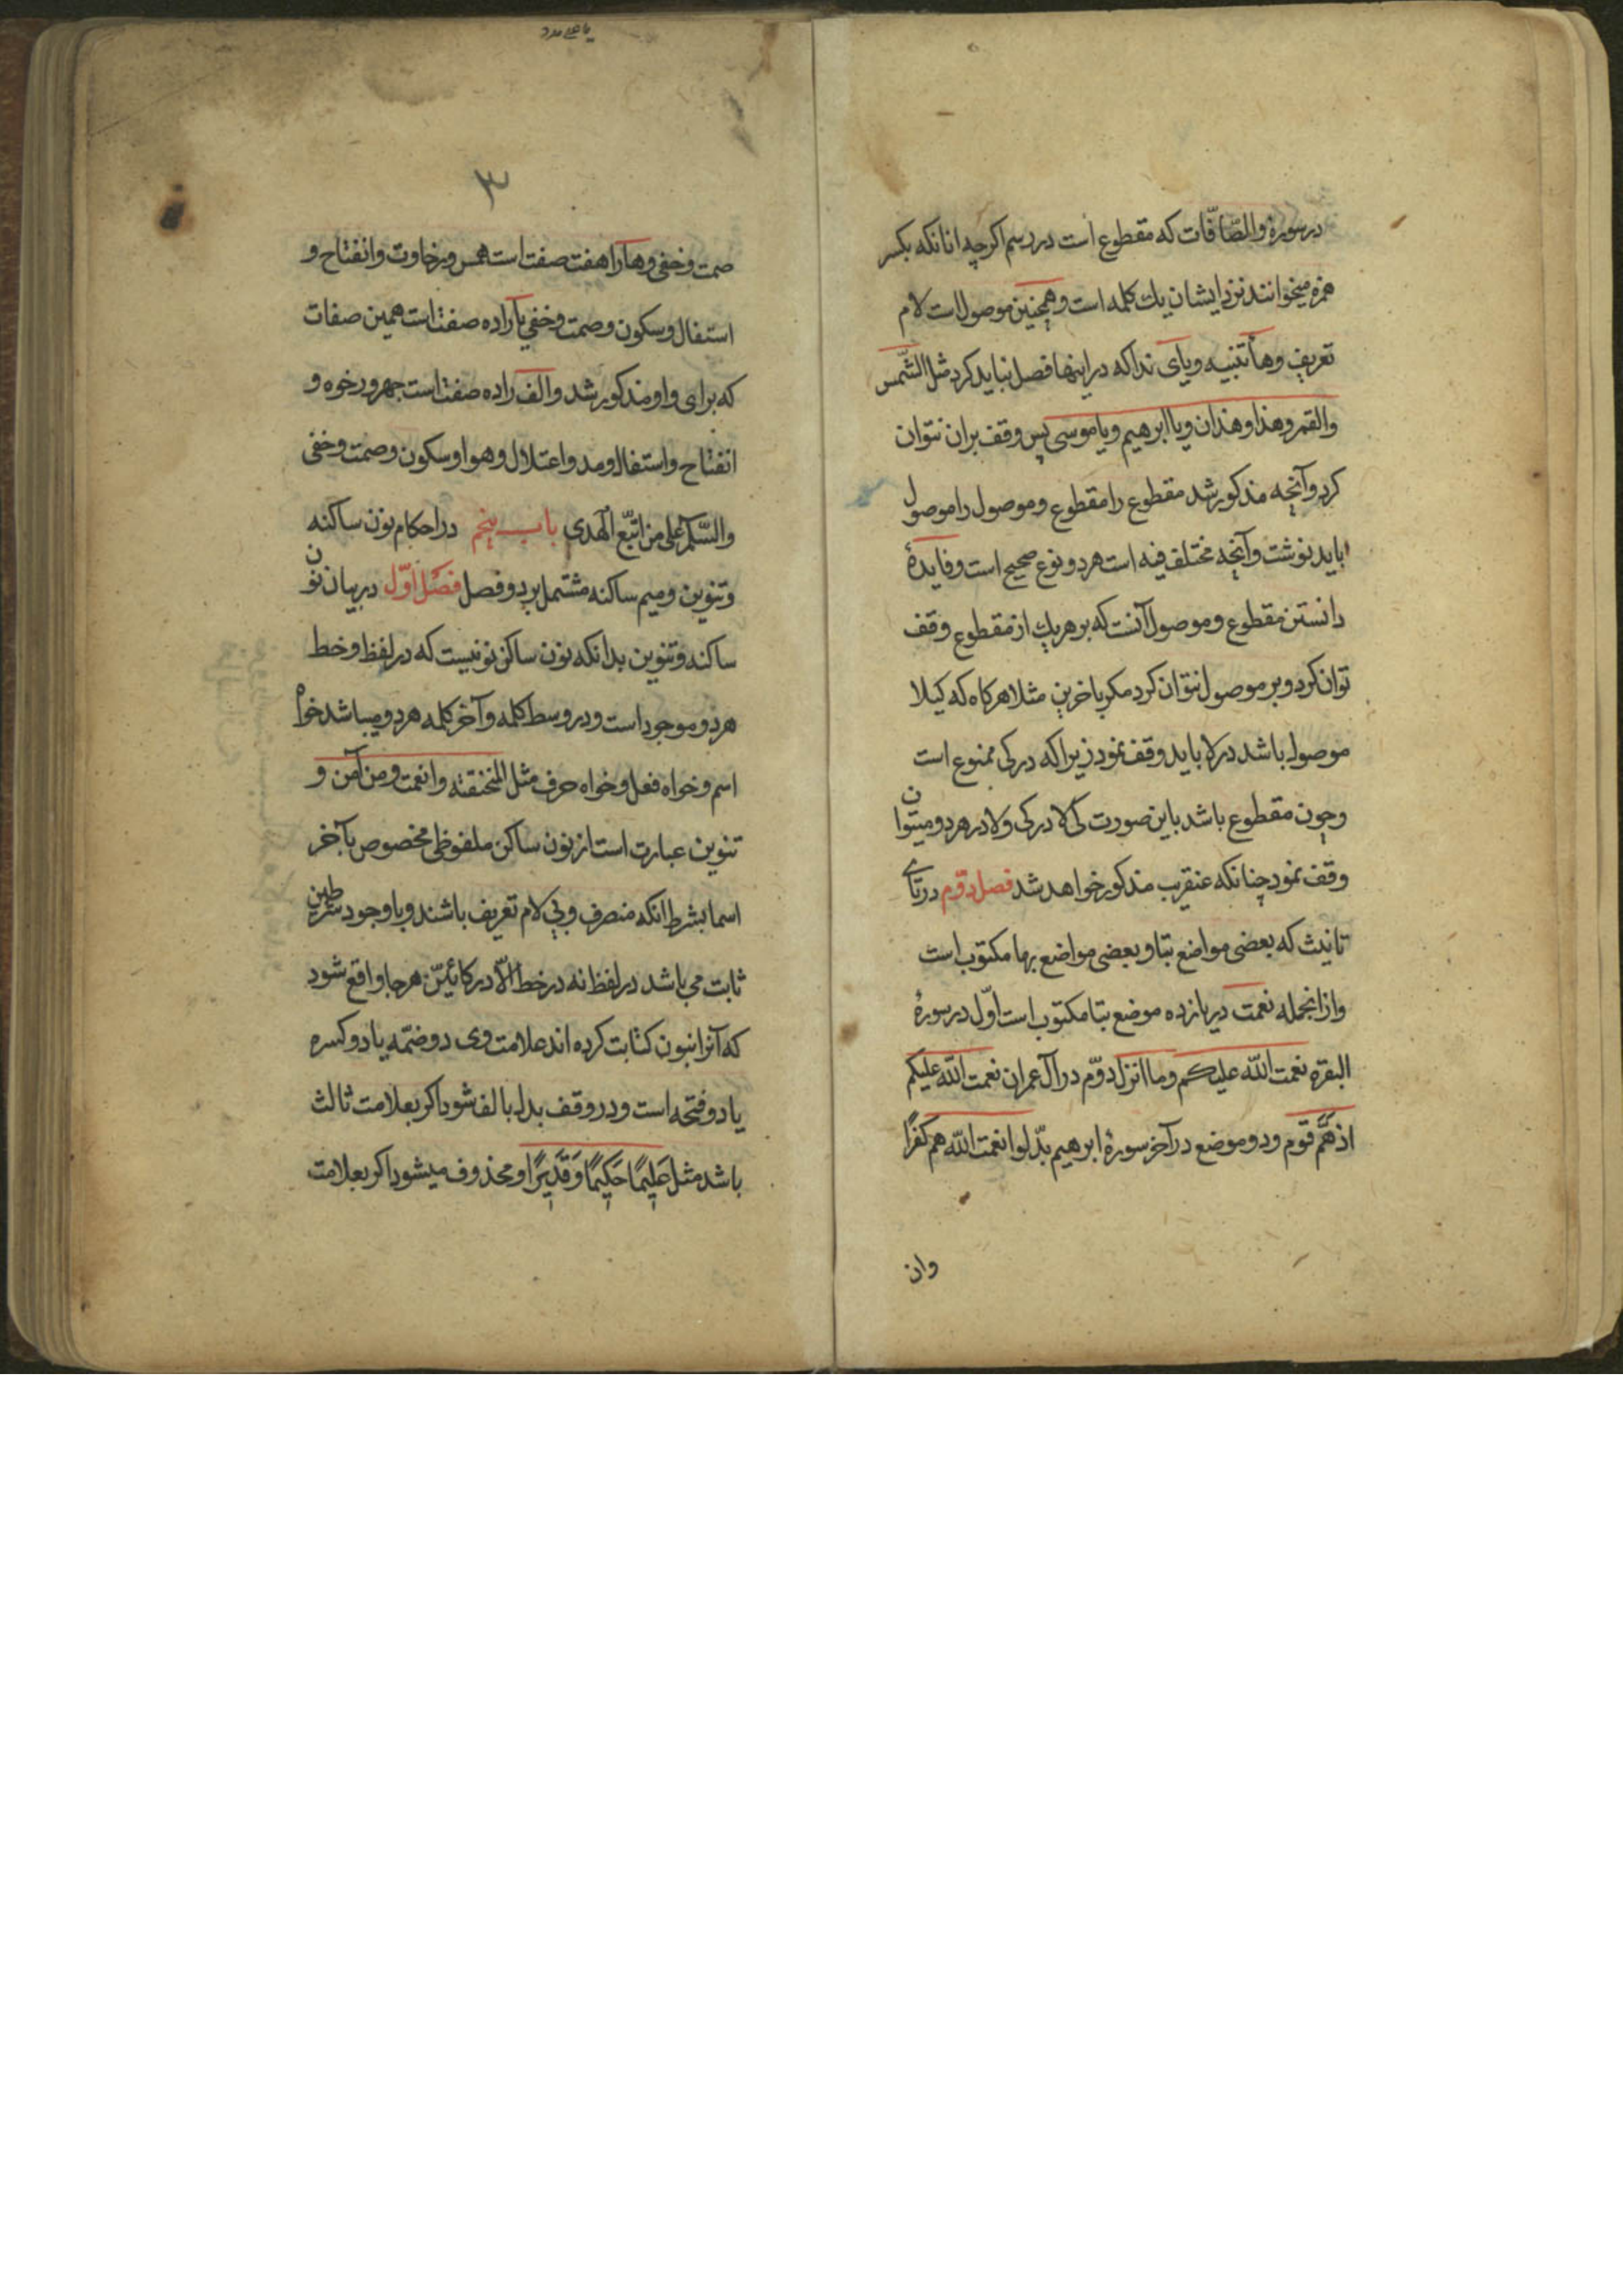 در سورهٔ والصّافّات که مقطوع است در رسم اکرچه انانکه بکسر
همزه میخوانند نزد ایشان یك کلمه است و همچنین موصول است لام
تعریف وهأ تنبیه ویای ندا که در اینها فصل نباید کرد مثل الشّمس
والقمر وهذا وهذان ویا ابرهیم ویا موسی پس وقف بران نتوان
کرد وآنچه مذکور شد مقطوع را مقطوع وموصول را موصول
باید نوشت وآنچه مختلف فیه است هر دو نوع صحیح است وفایدهٔ
دانستن مقطوع وموصول آنست که بر هریك از مقطوع وقف
توان کرد وبر موصول نتوان کرد مکر باخرین مثلا هرکاه که کیلا
موصول باشد در لا باید وقف نمود زیرا که در کی ممنوع است
وچون مقطوع باشد باین صورت کی لا در کی ولا در هر دو میتوان
وقف نمود چنانکه عنقریب مذکور خواهد شد فصل دوّم در تای
تانیث که بعضی مواضع بتا وبعضی مواضع بها مکتوب است
واز انجمله نعمت در یازده موضع بتا مکتوب است اوّل در سورهٔ
البقره نعمت الله علیکم وما انزل دوّم در آل عمران نعمت الله علیکم
اذ همّ قوم ودو موضع در آخر سورهٔ ابرهیم بدّلوا نعمت الله هم کفرًا
وان
۳
صمت وخفی وهارا هفت صفت است همس ورخاوت وانفتاح و
استفال وسکون وصمت وخفي یآ را ده صفت است همین صفات
که برای واو مذکور شد والف را ده صفت است جهر ورخوه و
انفتاح واستفال ومد واعتلال وهوا وسکون وصمت وخفی
والسّلم علی من اتّبع الهدی باب پنجم در احکام نون ساکنه
وتنوین ومیم ساکنه مشتمل بر دو فصل فصل اوّل در بیان نون
ساکنه وتنوین بدانکه نون ساکن نونیست که در لفظ وخط
هر دو موجود است ودر وسط کلمه وآخر کلمه هر دو میباشد خواه
اسم وخواه فعل وخواه حرف مثل المنخنقة وانعمت ومن آمن و
تنوین عبارت است از نون ساکن ملفوظی مخصوص بآخر
اسما بشرط انکه منصرف وبی لام تعریف باشند وباوجود شرطین
ثابت می باشد در لفظ نه در خط الّا در کائیّن هر جا واقع شود
که آنرا بنون کتابت کرده اند علامت وی دو ضمّه یا دو کسره
یا دو فتحه است ودر وقف بدل بالف شود اکر بعلامت ثالث
باشد مثل عَلِیمًا حَکِیمًا وَقَدِیرًا ومحذوف میشود اکر بعلامت